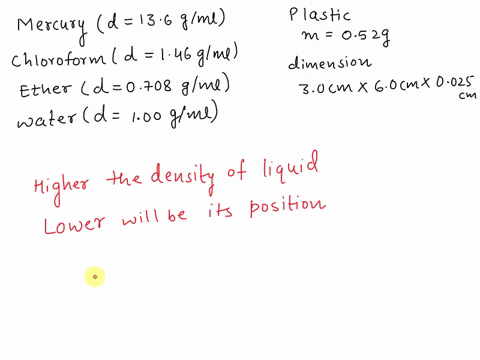 Mercury (d = 13.6 g/ml)
Chloroform (d = 1.46 g/ml)
Ether (d = 0.708 g/ml)
water (d = 1.00 g/ml)
Plastic
m = 0.52g
dimension
3.0cm × 6.0cm × 0.025
cm
Higher the density of liquid
Lower will be its position